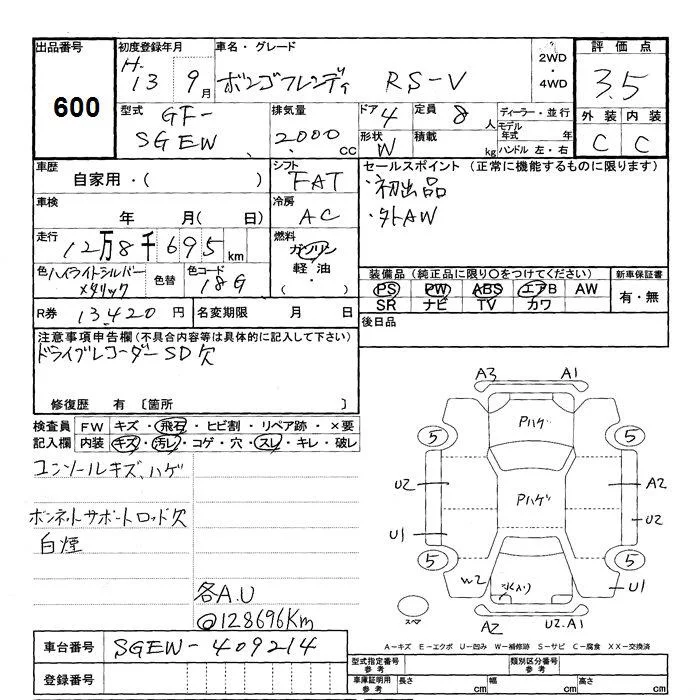 出品番号 初度登録年月 車名・グレード 2WD・4WD 評価点
600
H-13 9月 ボンゴフレンディ RS-V 3.5
型式 GF-SGEW
排気量 2000cc
ドア 4 定員 8人
形状 W 積載 kg
ディーラー・並行
モデル年式 年
ハンドル 左・右
外装 内装
C C
車歴 自家用・( )
シフト FAT
車検 年 月( 日)
冷房 AC
走行 12万8千695km
燃料 ガソリン 軽油 ( ・ )
色 ハイライトシルバーメタリック 色替 色コード 18G
R券 13420円 名変期限 月 日
セールスポイント (正常に機能するものに限ります)
・初出品
・外AW
装備品 (純正品に限り○をつけてください) 新車保証書
PS PW ABS エアB AW 有・無
SR ナビ TV カワ
後日品
注意事項申告欄 (不具合内容等は具体的に記入して下さい)
ドライブレコーダーSD欠
修復歴 有 〔箇所 〕
検査員 FW キズ・飛石・ヒビ割・リペア跡・×要
記入欄 内装 キズ・汚レ・コゲ・穴・スレ・キレ・破レ
コンソールキズ、ハゲ
ボンネットサポートロッド欠
白煙
各A.U
@128696Km
A3 A1
Pハゲ
5 5
U2 A2
Pハゲ
U2
U1
5 5
W2 U1
スペア
A2 U2.A1
A-キズ E-エクボ U-凹み W-補修跡 S-サビ C-腐食 XX-交換済
車台番号 SGEW-409214
登録番号
型式指定番号 参考 類別区分番号 参考
車庫証明用 参考 長さ cm 幅 cm 高さ cm